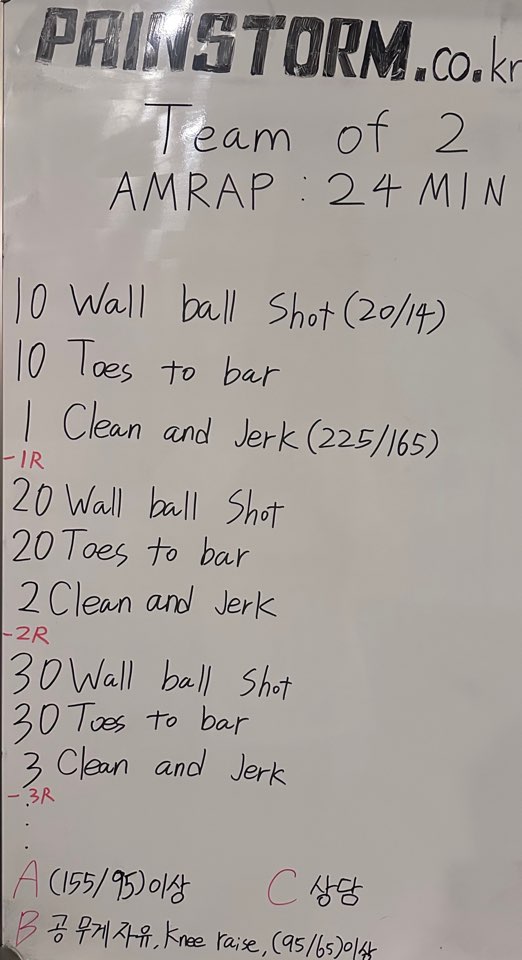 PAINSTORM.co.kr
Team of 2
AMRAP : 24 MIN
10 Wall ball Shot (20/14)
10 Toes to bar
1 Clean and Jerk (225/165)
-1R
20 Wall ball Shot
20 Toes to bar
2 Clean and Jerk
-2R
30 Wall ball Shot
30 Toes to bar
3 Clean and Jerk
-3R
A (155/95)이상 C 상담
B 공 무게 자유, Knee raise, (95/65)이상